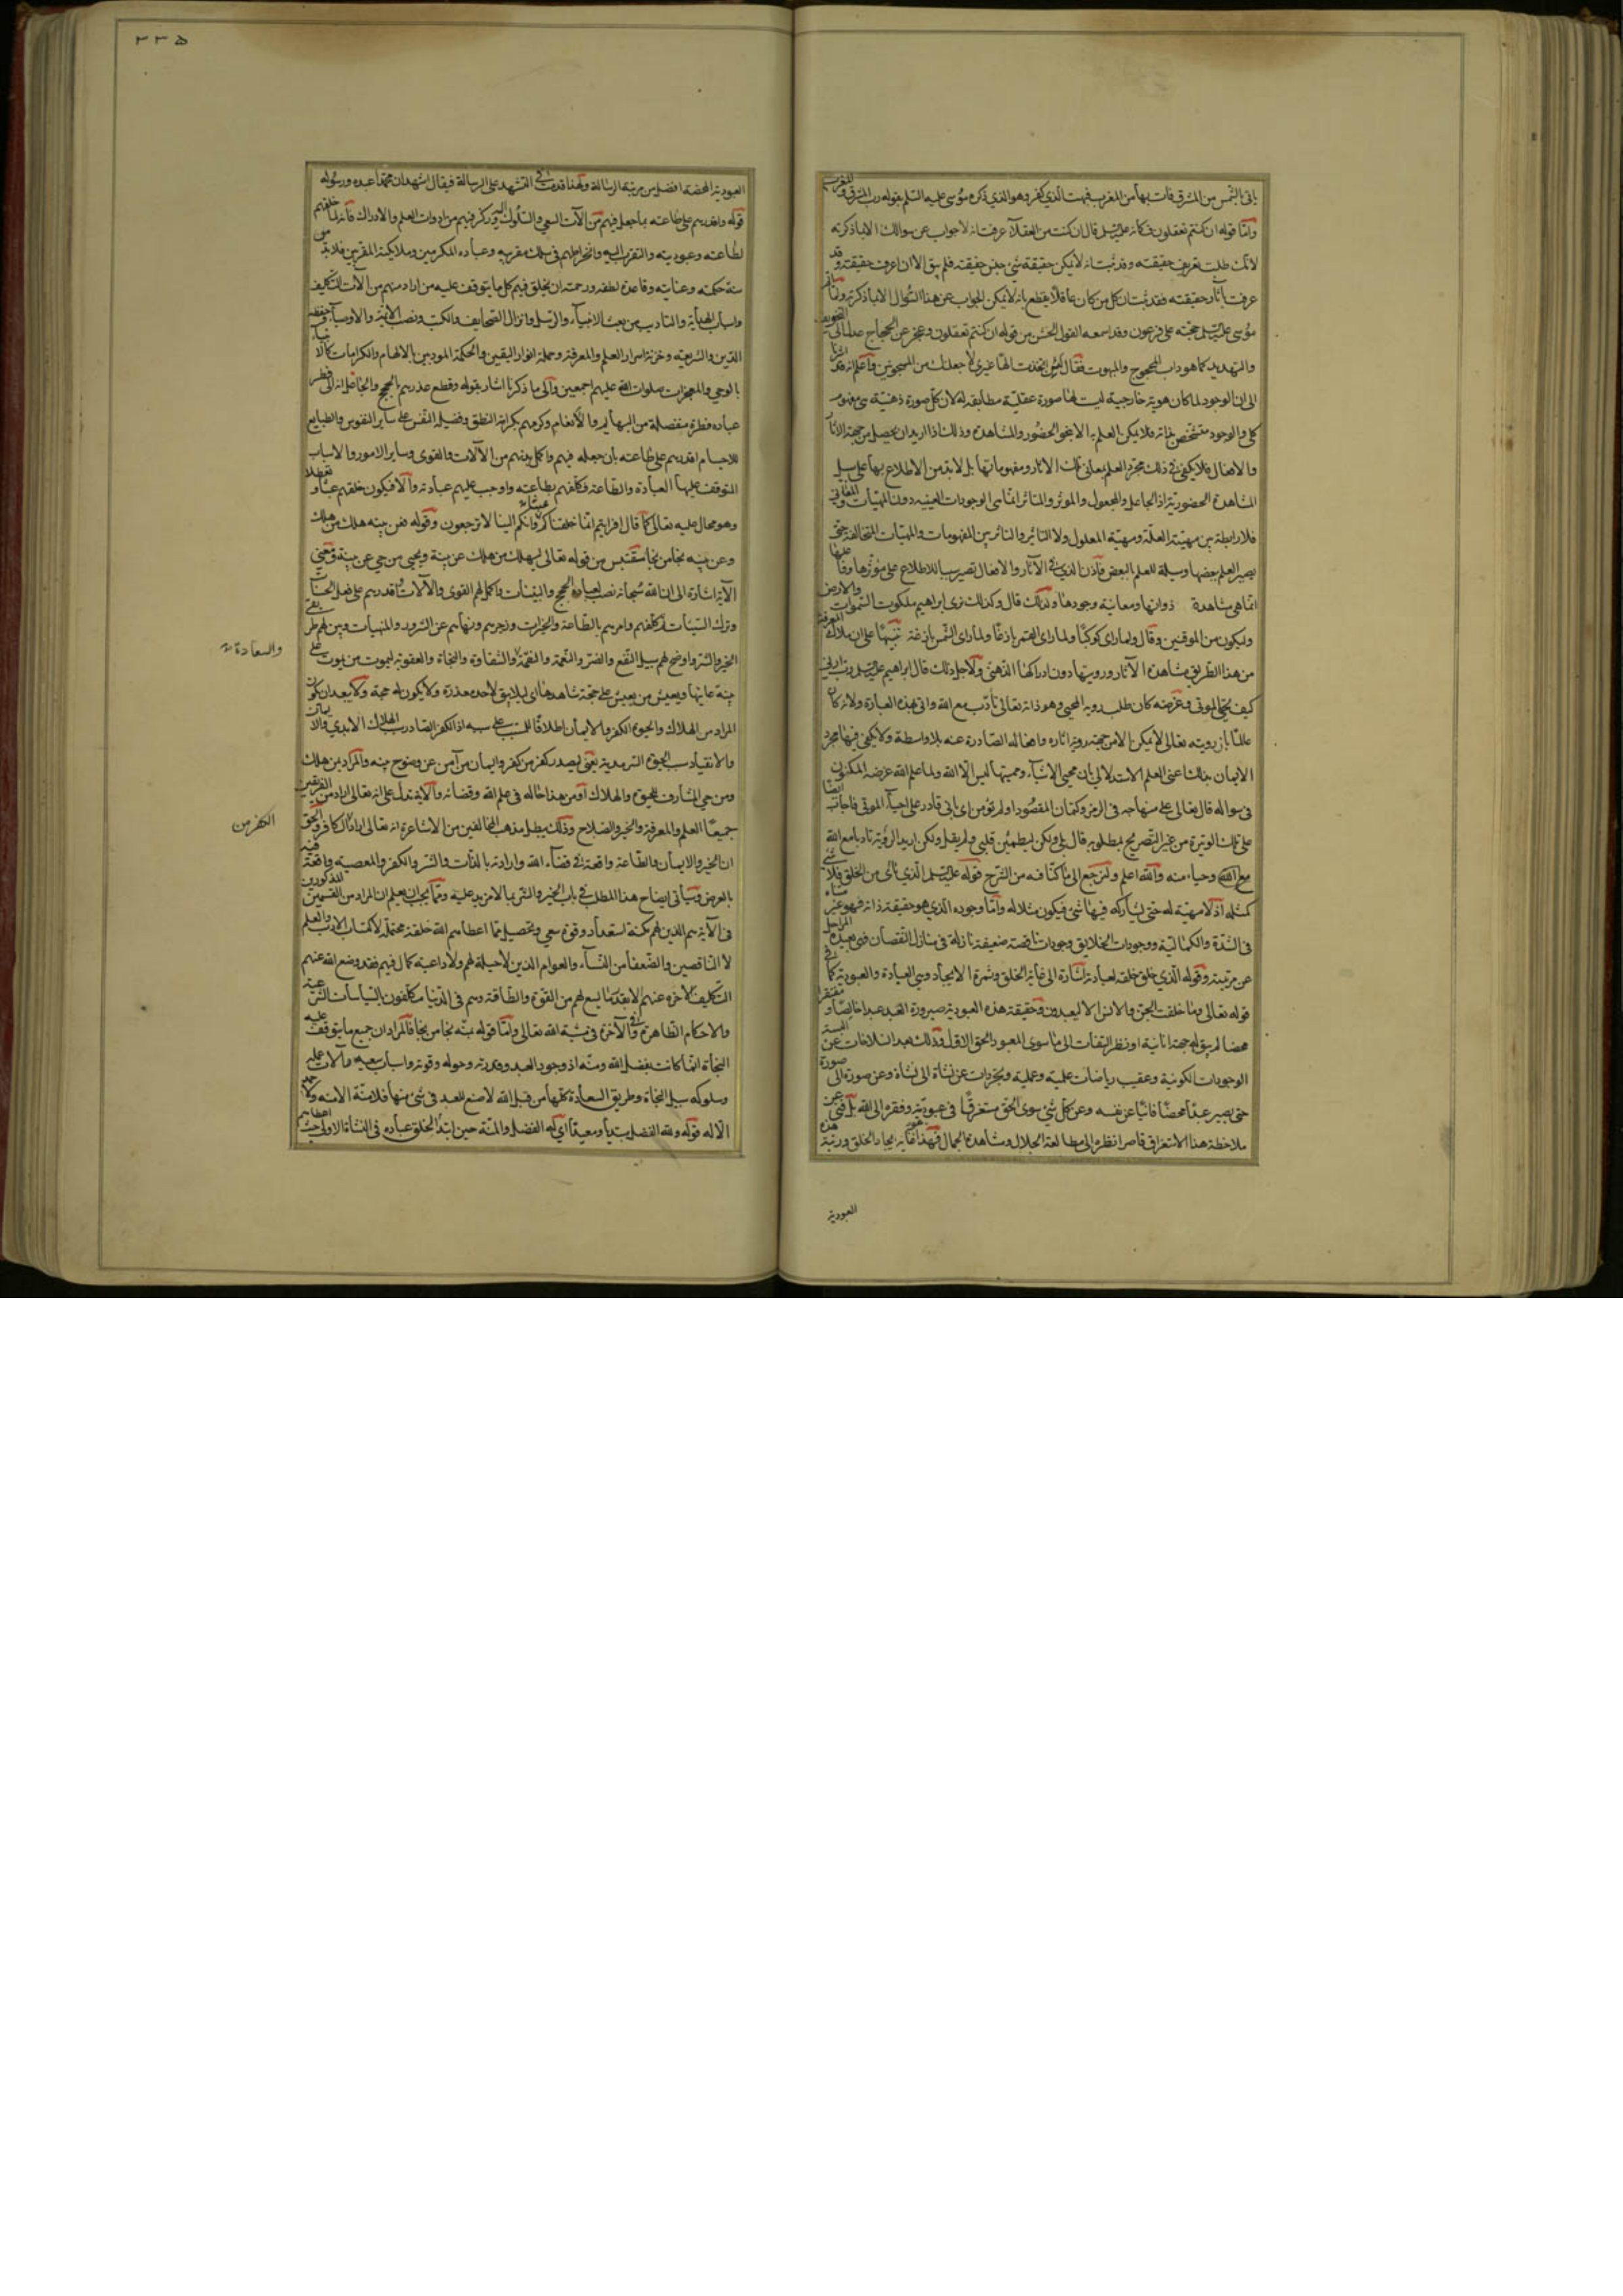 ياتى بالشمس من المشرق فات بها من المغرب فبهت الذي كفر وهو الذي ذكره موسى عليه السلام بقوله رب المشرق والمغرب
وامّا قوله ان كنتم تعقلون فكانه عليه السلم قال ان كنت من العقلاء عرفت انه لا جواب عن سوالك الا ما ذكرته
لانك طلبت تعريف حقيقته وقد ثبت انه لا يمكن حقيقة شئ حقيقته فلم يبق الا ان اعرف حقيقته وقد
عرفت بآثار حقيقته فقد ثبت ان كل من كان عاقلا يقطع بانه لا يمكن الجواب عن هذا السؤال الا بما ذكرته ولما
موسى عليه السلم حجته على فرعون وقد اسمعه القول الخشن من قوله ان كنتم تعقلون وعجز عن الحجاج عدل الى التخويف
والتهديد كما هو داب المحجوج والمبهوت فقال لئن اتخذت الها غيري لاجعلنك من المسجونين واعلم انه قد اشرنا
الى ان الوجود لما كان هوية خارجية ليست لها صورة عقلية مطابقه له لان كل صورة ذهنية هى مفهوم
كلى والوجود متشخص بذاته فلا يمكن العلم به الا بنحو الحضور والمشاهدة وذلك اذا اريد ان يحصل من جهة الاثار
والافعال فلا يكفي في ذلك مجرد العلم بمعاني تلك الاثار ومفهوماتها بل لا بد من الاطلاع بها على سبيل
المشاهدة الحضورية اذ الجاعل والمجعول والموثر والمتاثر انما هي الوجودات العينية دون المهيات والمعاني
فلا رابطة بين مهية العلة ومهية المعلول ولا التاثير والتاثر بين المفهومات والمهيات المتخالفة حتى
يصير العلم ببعضها وسيلة للعلم بالبعض فاذن الذي في الآثار والافعال تصير سببا للاطلاع على موثرها وفاعلها
انما هي مشاهدة ذواتها ومعاينة وجودها ولذلك قال وكذلك نرى ابراهيم ملكوت السموات والارض
وليكون من الموقنين وقال ولما راى كوكبا ولما راى القمر بازغا ولما راى الشمس بازغة تنبيها على ان ملاك المعرفة
من هذا الطريق مشاهدة الآثار ورويتها دون ادراكها الذهنى ولاجل ذلك قال ابراهيم عليه السلم رب ارني
كيف تحيي الموتى وغرضه كان طلب روية المحيي وهو ذاته تعالى تأدب مع الله واتى بهذه العبارة ولانه كان
عالما بان رويته تعالى لا يمكن الا من جهة روية اثاره وافعاله الصادرة عنه بلا واسطة ولا يكفي فيها مجرد
الايمان بذلك اعني العلم الاستدلالي بان محيي الاشياء ومميتها ليس الا الله ولما علم الله غرضه المكنون
فى سواله قال تعالى على منهاجه في الرمز وكتمان المقصود اولم تؤمن اى بانى قادر على احياء الموتى فاجاب ايضا
على تلك الوتيرة من غير التصريح بمطلوبه قال بلى ولكن ليطمئن قلبي ولم يقل ولكن اريد الروية تادبا مع الله
مع الله وحياء منه والله اعلم ولنرجع الى ما كنا فيه من الشرح قوله عليه السلم الذي نأى من الخلق فلا شئ
كمثله اذ لا مهية له حتى يشاركه فيها شئ فيكون مثلا له وامّا وجوده الذي هو حقيقة ذاته فهو غير متناه
فى الشدة والكمالية ووجودات الخلايق وجودات ناقصة ضعيفة نازلة في منازل النقصان فهى بعيدة المراحل
عن مرتبته وقوله الذي خلق خلقه لعبادته اشارة الى غاية الخلق وثمرة الايجاد وهى العبادة والعبودية كما في
قوله تعالى وما خلقت الجن والانس الا ليعبدون وحقيقة هذه العبودية صيرورة العبد عبدا خالصا ومفتقرا
محضا لم يبق له جهة انانية او نظر التفات الى ما سوى المعبود الحق الاول وذلك بعد انسلاخات عن البسته
الوجودات الكونية وعقيب رياضات علمية وعملية وتجردات عن نشاة الى نشاة وعن صورة الى صورة
حتى يصير عبدا محضا فانيا عن نفسه وعن كل شئ سوى الحق مستغرقا في عبوديته وفقره الى الله بل فنى عن
ملاحظة هذا الاستغراق قاصرا نظره الى مطالعة الجلال ومشاهدة الجمال فهذا هو غاية ايجاد الخلق ورتبة هذه
العبودية
٣٣٥
العبودية المحضة افضل من مرتبة الرسالة ولهذا قدمت في التشهد على الرسالة فيقال اشهد ان محمدا عبده ورسوله
قوله واقدرهم على طاعته بما جعل فيهم من الآت السعي والسلوك اليه وركز فيهم من ادوات العلم والادراك فانه لما خلقهم
لطاعته وعبوديته والتقرب اليه وانخراطهم فى سلك مقربيه وعباده المكرمين وملايكته المقربين فلا بد من
سنة حكمته وعنايته وقاعدة لطفه ورحمته ان يخلق فيهم كل ما يتوقف عليه من اراد منهم من الآت التكاليف
واسباب الهداية والتاديب من بعث الانبياء والرسل وانزال الصحايف والكتب ونصب الائمة والاوصياء وحفظه
الدين والشريعه وخزنة اسرار العلم والمعرفة وحملة انوار اليقين والحكمة المودبين بالالهام والكرامات كالانبياء
بالوحي والمعجزات صلوات الله عليهم اجمعين والى ما ذكرنا اشار بقوله وقطع عذرهم بالحجج والحاصل انه لما فطر
عباده فطرة منفصلة من البهايم والانعام وكرمهم بكرامة النطق وفضيلة النفس على ساير النفوس والطبايع
للاجسام اقدرهم على طاعته بأن جعله فيهم واكمل بينهم من الآلات والقوى وساير الامور والاسباب
المتوقف عليها العبادة والطاعة فكلفهم بطاعته واوجب عليهم عبادته والا فيكون خلقهم عبثا وتعطلا
وهو محال عليه تعالى كما قال افحسبتم انما خلقناكم عبثا وانكم الينا لا ترجعون وقوله فمن بينه هلك من هلك
وعن بينه نجا من نجا مقتبس من قوله تعالى ليهلك من هلك عن بينة ويحيى من حي عن بينة ومعنى
الآية اشارة الى ان الله سبحانه نصب لعباده الحجج والبينات واكمل لهم القوى والآلات واقدرهم على فعل الحسنات
وترك السيئات وكلفهم وامرهم بالطاعة والخيرات وزجرهم ونهاهم عن الشرور والمنهيات وبين لهم طريقي
الخير والشر واوضح لهم سبيل النفع والضر والنعمة والنقمة والشقاوة والنجاة والعقوبة ليموت من يموت على
والسعادة
بينة عاينها ويعيش من يعيش على حجة شاهدها اى لئلا يبقى لاحد معذرة ولا يكون له حجة ولا يبعد ان يكون
المراد من الهلاك والحيوة الكفر والايمان اطلاقا للمسبب على سببه اذ الكفر الصادر سبب الهلاك الابدي والايمان
والانقياد سبب الحيوة السرمدية يعنى ليصدر كفر من كفر وايمان من آمن عن وضوح بينه والمراد بمن هلك
ومن حي المشارف للحيوة والهلاك او من هذا حاله فى علم الله وقضائه والاية تدل على انه تعالى اراد من الفريقين
جميعا العلم والمعرفة والخير والصلاح وذلك يبطل مذهب المخالفين من الاشاعرة انه تعالى اراد الكافر والحق
الكفر من
ان الخير والايمان والطاعة واقعة فى قضاء الله وارادته بالذات والشر والكفر والمعصيه واقعة فيه
بالعرض وسيأتى ايضاح هذا المطلب في باب الخير والشر بما لا مزيد عليه ومما يجب ان يعلم ان المراد من القسمين المذكورين
فى الآية هم الذين لهم مكنة استعداد وقوة سعي وتحصيل مما اعطاهم الله خلقة محتملة لاكتساب الادب والعلم
لا الناقصين والضعفا من النساء والعوام الذين لا حيلة لهم ولا داعية كمال فيهم فقد وضع الله عنهم
التكليف الاخره عنهم الا بقدر ما يسع لهم من القوة والطاقة وهم في الدنيا مكلفون بالسياسات الشرعية
والاحكام الظاهرة وفي الآخرة فى مشية الله تعالى وامّا قوله بمنه نجا من نجا فالمراد ان جميع ما يتوقف عليه
النجاة انما كانت بفضل الله ومنه اذ وجود العبد وقدرته وحوله وقوته واسباب سعيه وآلات عمله
وسلوكه سبيل النجاة وطريق السعادة كلها من قبل الله لا صنع للعبد فى شئ منها فلا منة الا منه ولا حمد
الا له قوله ولله الفضل مبديا ومعيدا اي له الفضل والمنة حين ابتدا الخلق عباده في النشأة الاولى حيث اعطاهم